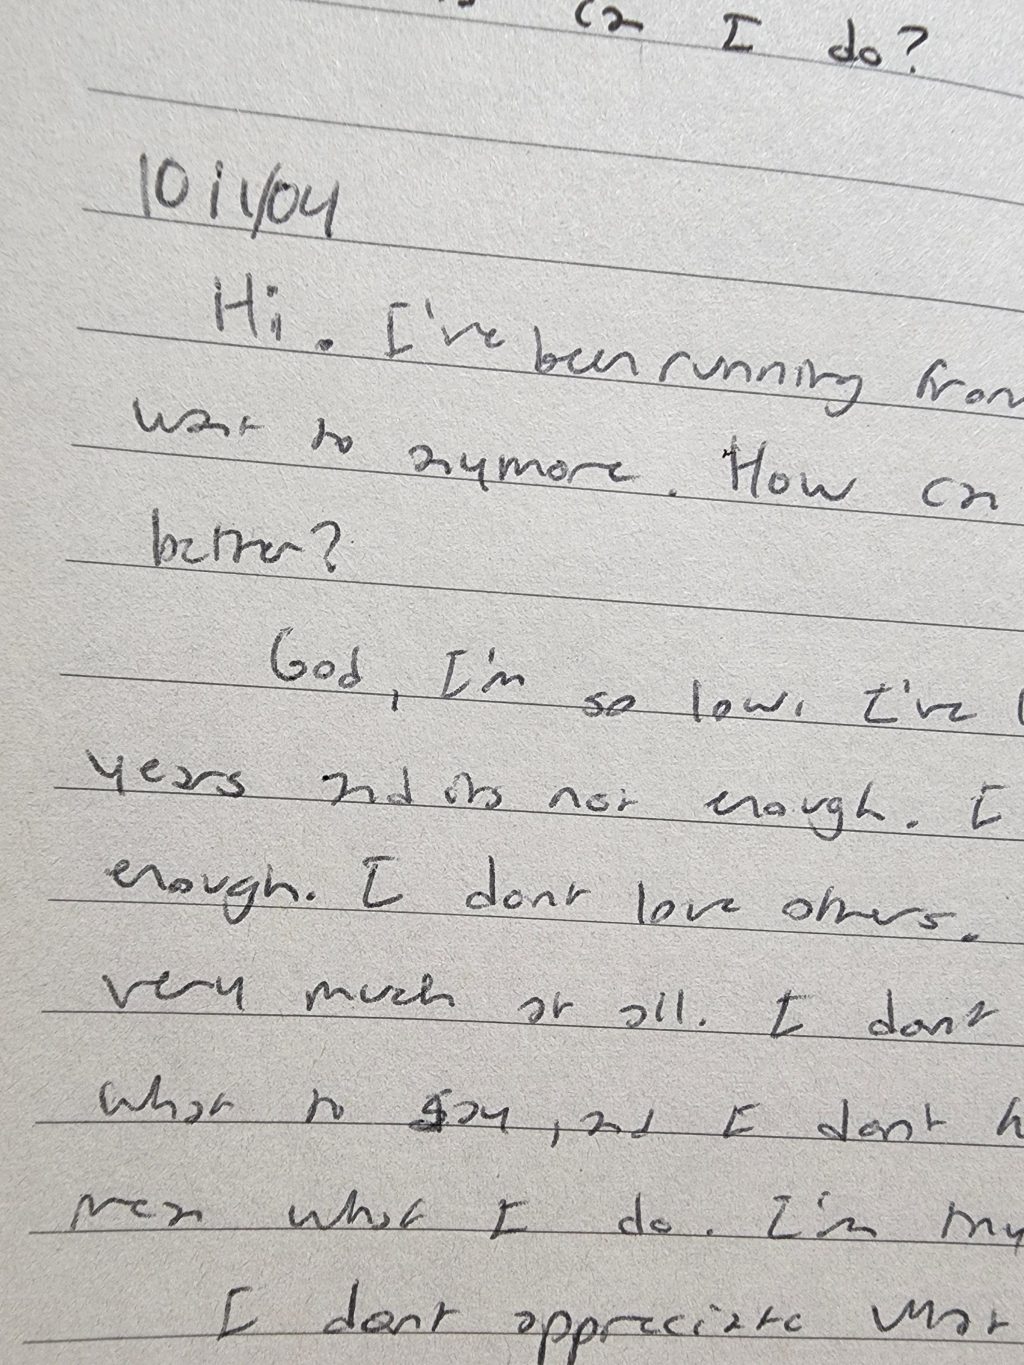 can I do?
10/11/04
Hi. I've been running from
want to anymore. How can
better?
God, I'm so low. I've
years and its not enough. I
enough. I dont love others.
very much at all. I dont
what to say, and I dont
mean what I do. I'm my
I dont appreciate what